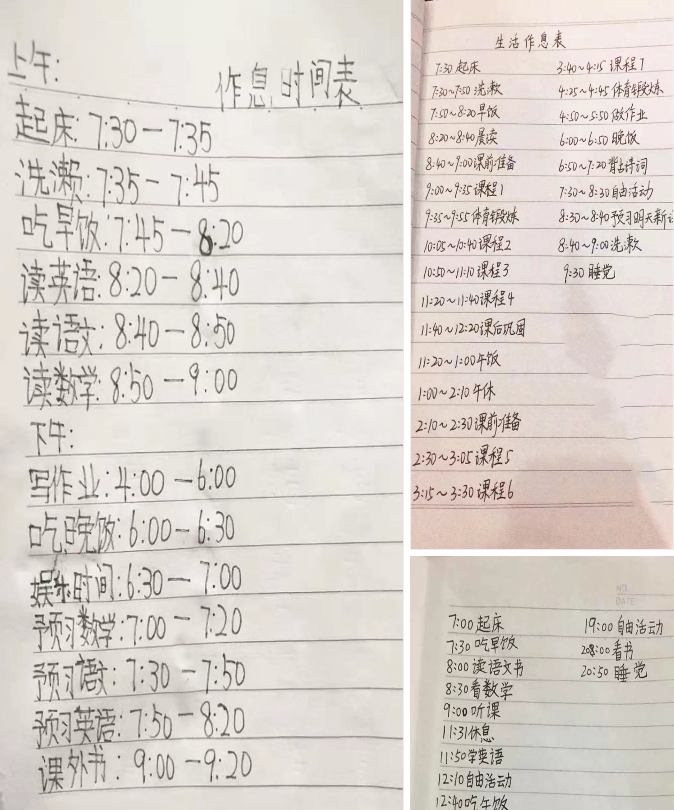 上午:
作息时间表
起床: 7:30—7:35
洗濑: 7:35—7:45
吃早饭: 7:45—8:20
读英语: 8:20—8:40
读语文: 8:40—8:50
读数学: 8:50—9:00
下午:
写作业: 4:00—6:00
吃晚饭: 6:00—6:30
娱乐时间: 6:30—7:00
予习数学: 7:00—7:20
预习语文: 7:30—7:50
预习英语: 7:50—8:20
课外书: 9:00—9:20
生活作息表
7:30 起床
7:30~7:50 洗漱
7:50~8:20 早饭
8:20~8:40 晨读
8:40~9:00 课前准备
9:00~9:35 课程1
9:35~9:55 体育锻炼
10:05~10:40 课程2
10:50~11:10 课程3
11:20~11:40 课程4
11:40~12:20 课后巩固
11:20~1:00 午饭
1:00~2:10 午休
2:10~2:30 课前准备
2:30~3:05 课程5
3:15~3:30 课程6
3:40~4:15 课程7
4:25~4:45 体育锻炼
4:50~5:50 做作业
6:00~6:50 晚饭
6:50~7:20 背古诗词
7:30~8:30 自由活动
8:30~8:40 预习明天新
8:40~9:00 洗漱
9:30 睡觉
NO.
DATE
7:00 起床
7:30 吃早饭
8:00 读语文书
8:30 看数学
9:00 听课
11:31 休息
11:50 学英语
12:10 自由活动
12:40 吃午饭
19:00 自由活动
20:00 看书
20:50 睡觉